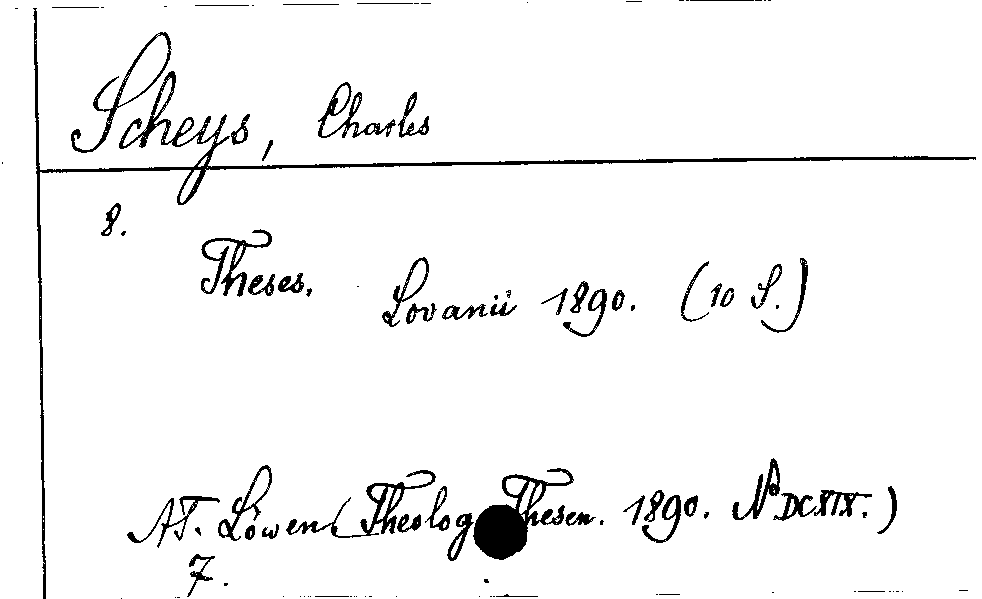 Scheys, Charles
8.
Theses. Lovanii 1890. (10 S.)
AT. Löwen (Theolog Thesen. 1890. No DCXIX.)
7.